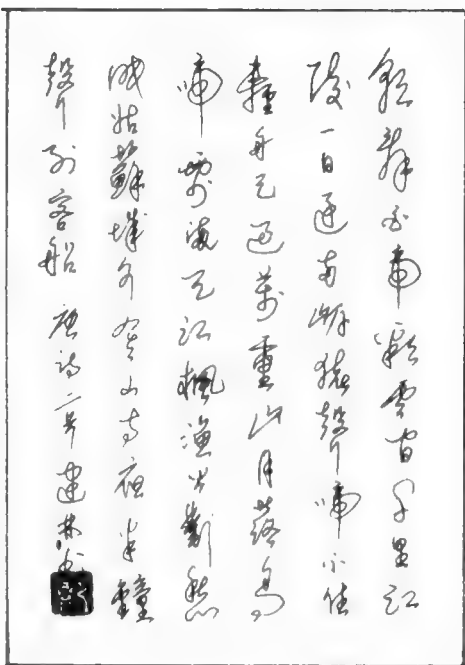 朝辞白帝彩雲間千里江
陵一日還両岸猿聲啼不住
輕舟已過萬重山月落烏
啼霜满天江楓渔火對愁
眠姑蘇城外寒山寺夜半鐘
聲到客船 唐詩二首 建林书